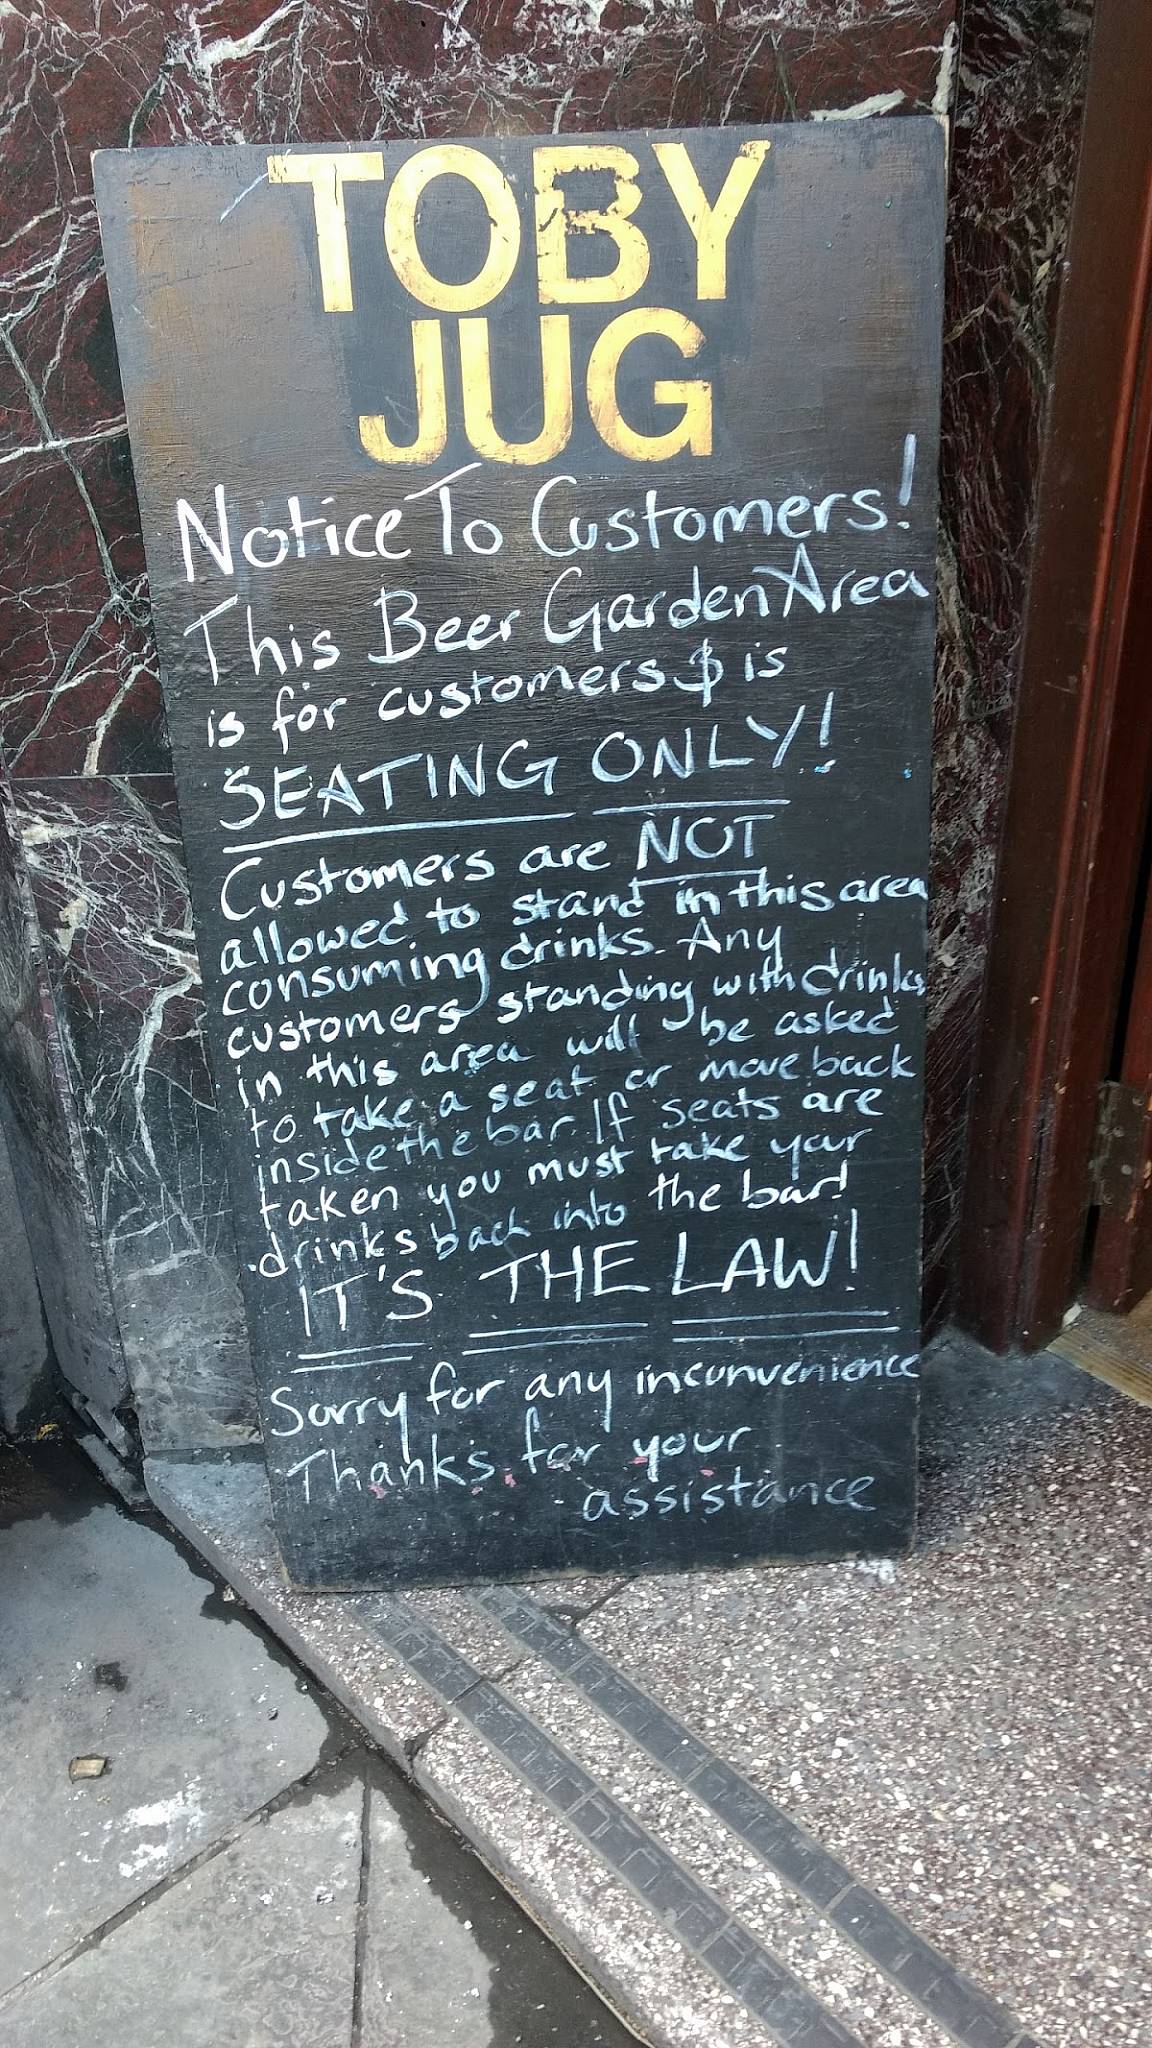 TOBY
JUG
Notice To Customers!
This Beer Garden Area
is for customers $ is
SEATING ONLY!
Customers are NOT
allowed to stand in this area
consuming drinks. Any
customers standing with drinks
in this area will be asked
to take a seat or move back
inside the bar. If seats are
taken you must take your
drinks back into the bar!
IT'S THE LAW!
Sorry for any inconvenience
Thanks for your
assistance